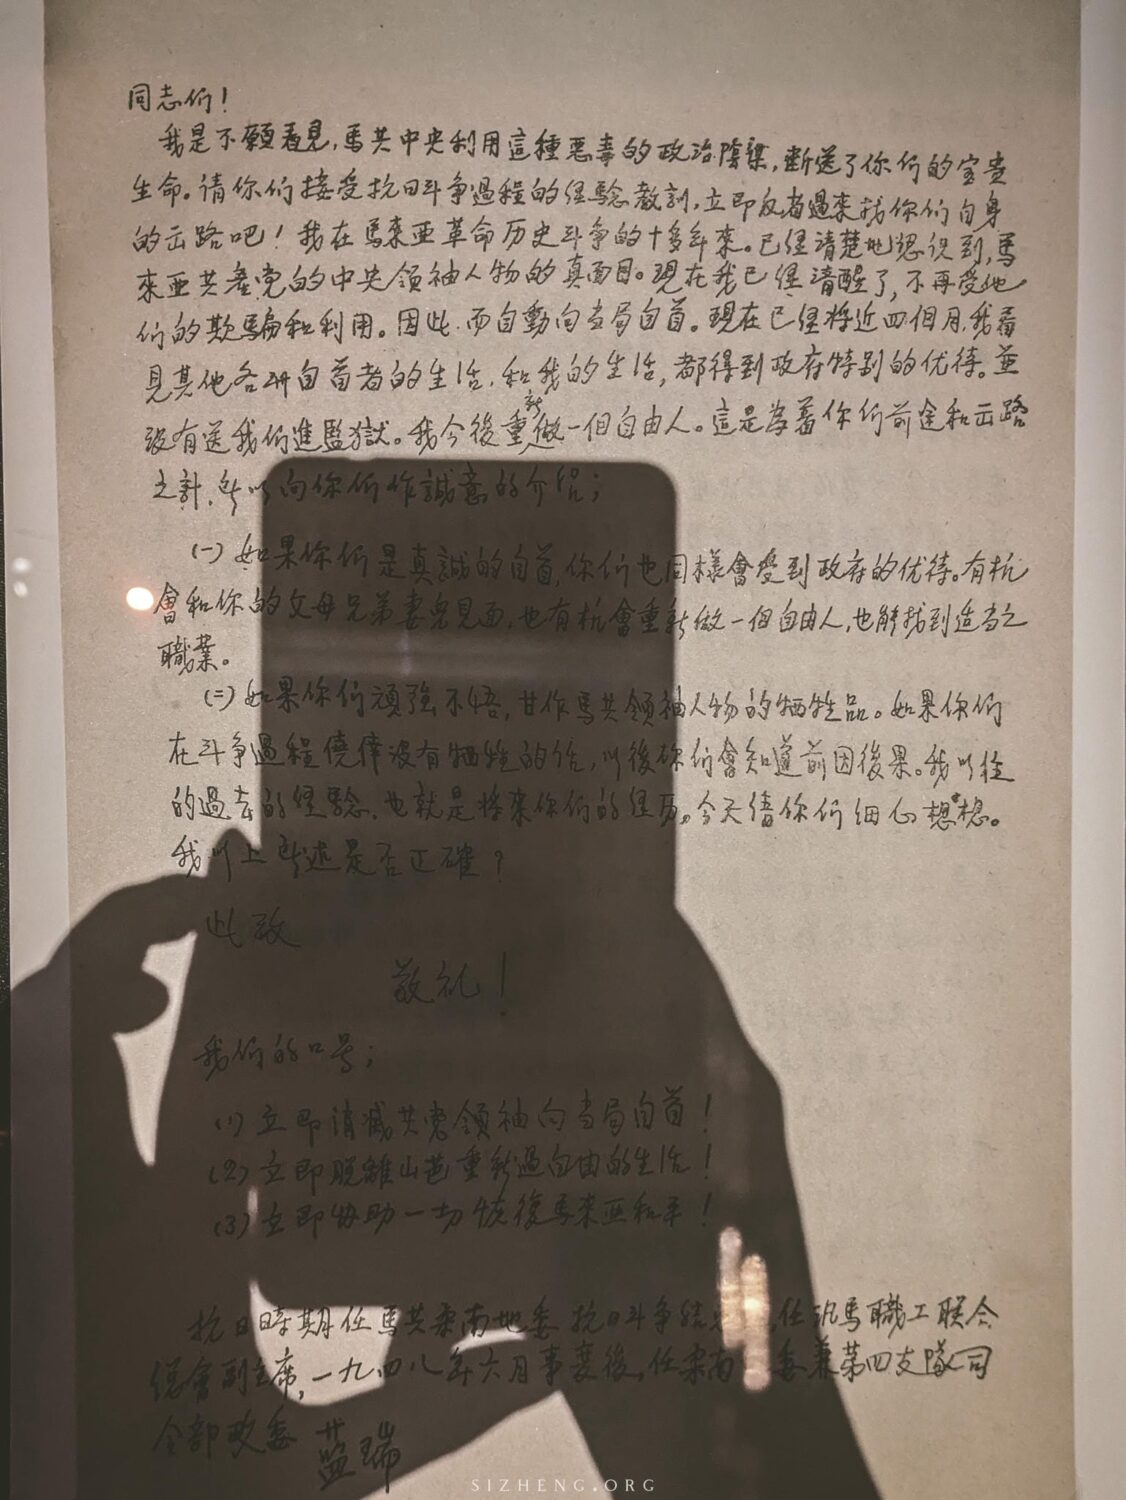 同志们！
我是不願看見，馬共中央利用這種惡毒的政治陰謀，断送了你们的宝贵
生命。请你们接受抗日斗争過程的经驗教訓，立即反省過來找你们自身
的出路吧！我在馬來亚革命历史斗争的十多年來。已經清楚地認识到，馬
來亚共產党的中央領袖人物的真面目。現在我已經清醒了，不再受他
们的欺騙和利用。因此而自動向当局自首。現在已經将近四個月，我看
見其他各州自首者的生活，和我的生活，都得到政府特别的优待。並
没有送我们進監獄。我今後重新做一個自由人。這是為着你们前途和出路
之計，所以向你们作誠意的介绍；
(一)如果你们是真誠的自首，你们也同樣會受到政府的优待。有机
會和你的父母兄弟妻兒見面，也有机會重新做一個自由人，也能找到适当之
職業。
(二)如果你们頑強不悟，甘作馬共領袖人物的牺牲品。如果你们
在斗争過程僥倖没有牺牲的话，以後你们會知道前因後果。我以往
的過去的经驗，也就是将來你们的经历。今天请你们细心想想。
我以上所述是否正確？
此致
敬礼！
我们的口号；
(1)立即消滅共党領袖向当局自首！
(2)立即脱離山芭重新過自由的生活！
(3)立即协助一切恢復馬來亚和平！
抗日時期任馬共柔南地委 抗日斗争结束，任班馬職工联合
總會副主席，一九四八年六月事变後，任柔南 委兼第四支隊司
令部政委 蓝瑞
SIZHENG.ORG